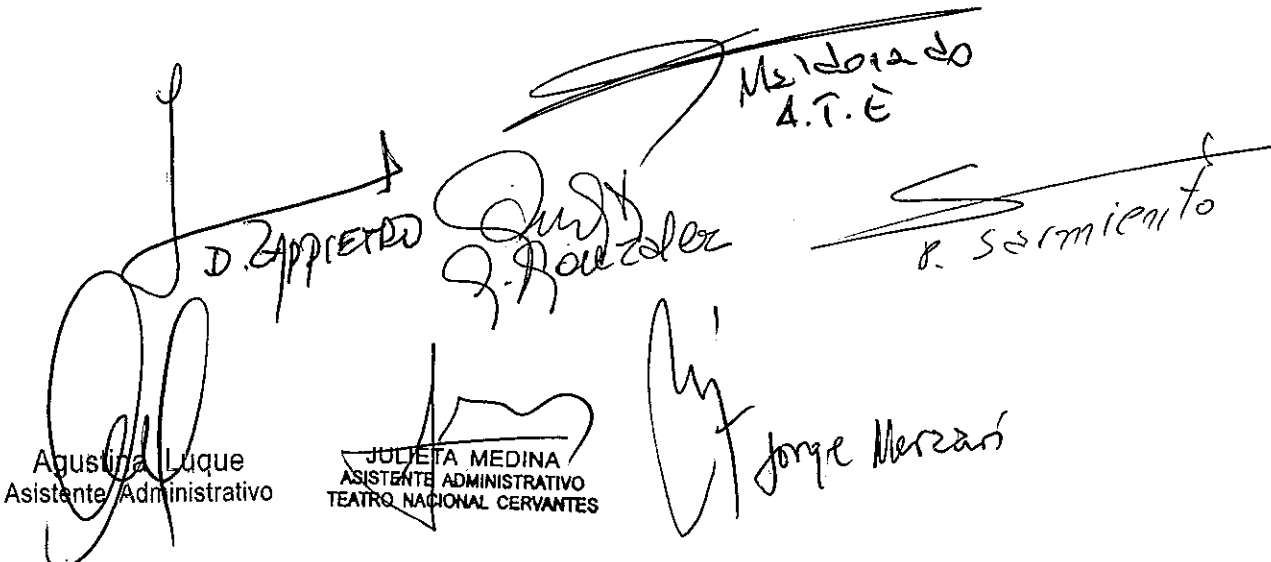 Maldonado
A.T.E
D. ZAPPIETRO
R. Gonzalez
P. Sarmiento
Agustina Luque
Asistente Administrativo
JULIETA MEDINA
ASISTENTE ADMINISTRATIVO
TEATRO NACIONAL CERVANTES
Jorge Merzari